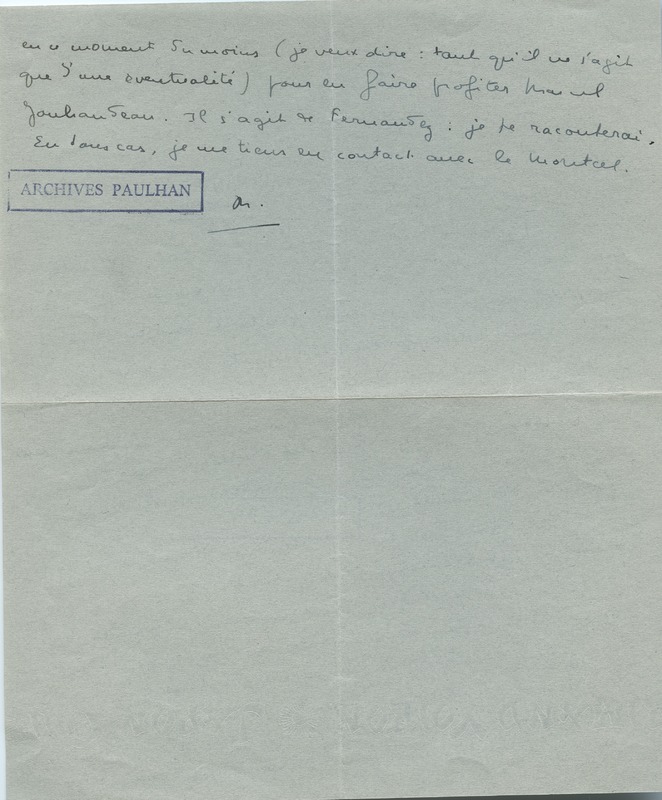 en ce moment du moins (je veux dire : tant qu'il ne s'agit
que d'une éventualité) pour en faire profiter Marcel
Jouhandeau. Il s'agit de Fernandez : je te raconterai.
En tous cas, je me tiens en contact avec le Montcel.
ARCHIVES PAULHAN